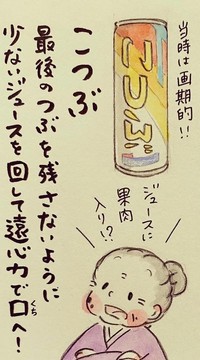 当時は画期的!!
こつぶ
こつぶ
最後のつぶを残さないように
少ないジュースを回して遠心力で口へ!
くち
ジュースに
果肉
入り!?